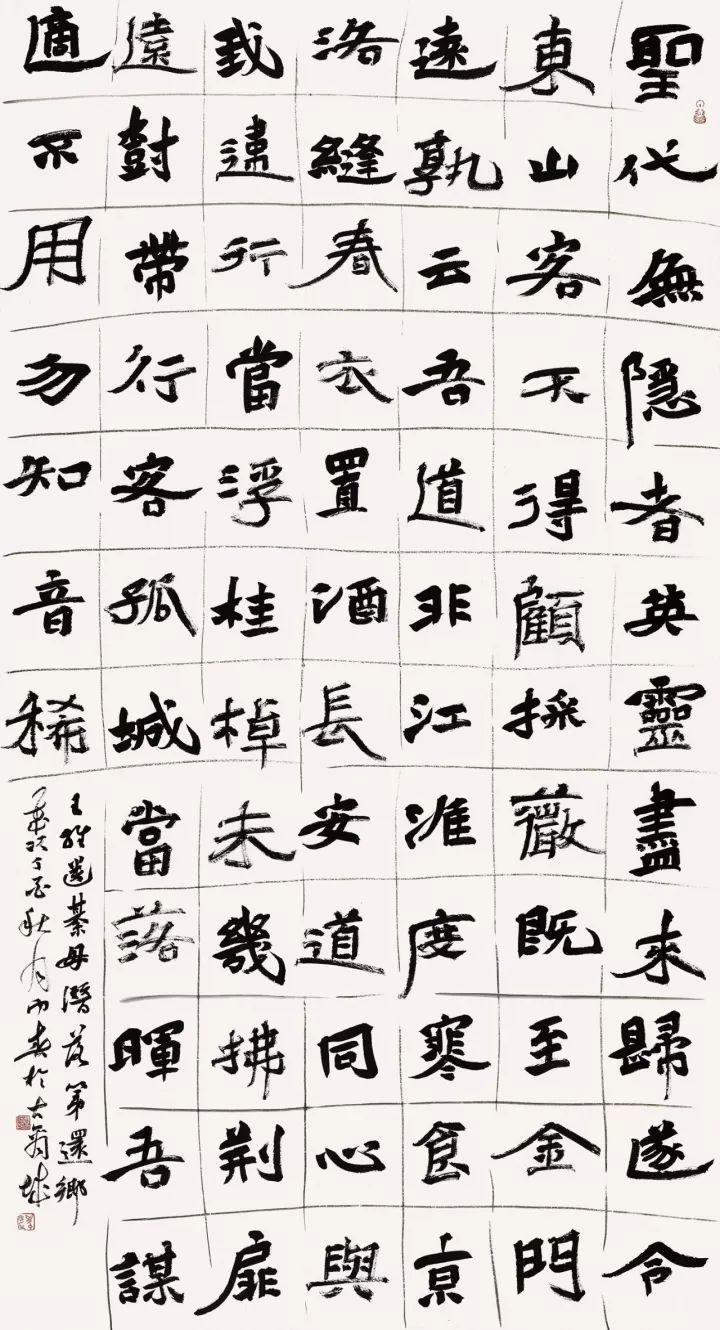 聖代無隱者英靈盡來歸遂令
東山客不得顧採薇既至金門
遠孰云吾道非江淮度寒食京
洛縫春衣置酒長安道同心與
我違行當浮桂棹未幾拂荆扉
遠樹帶行客孤城當落暉吾謀
適不用勿知音稀
王維送綦毋潛落第還鄉
歲次丁酉秋月於古城